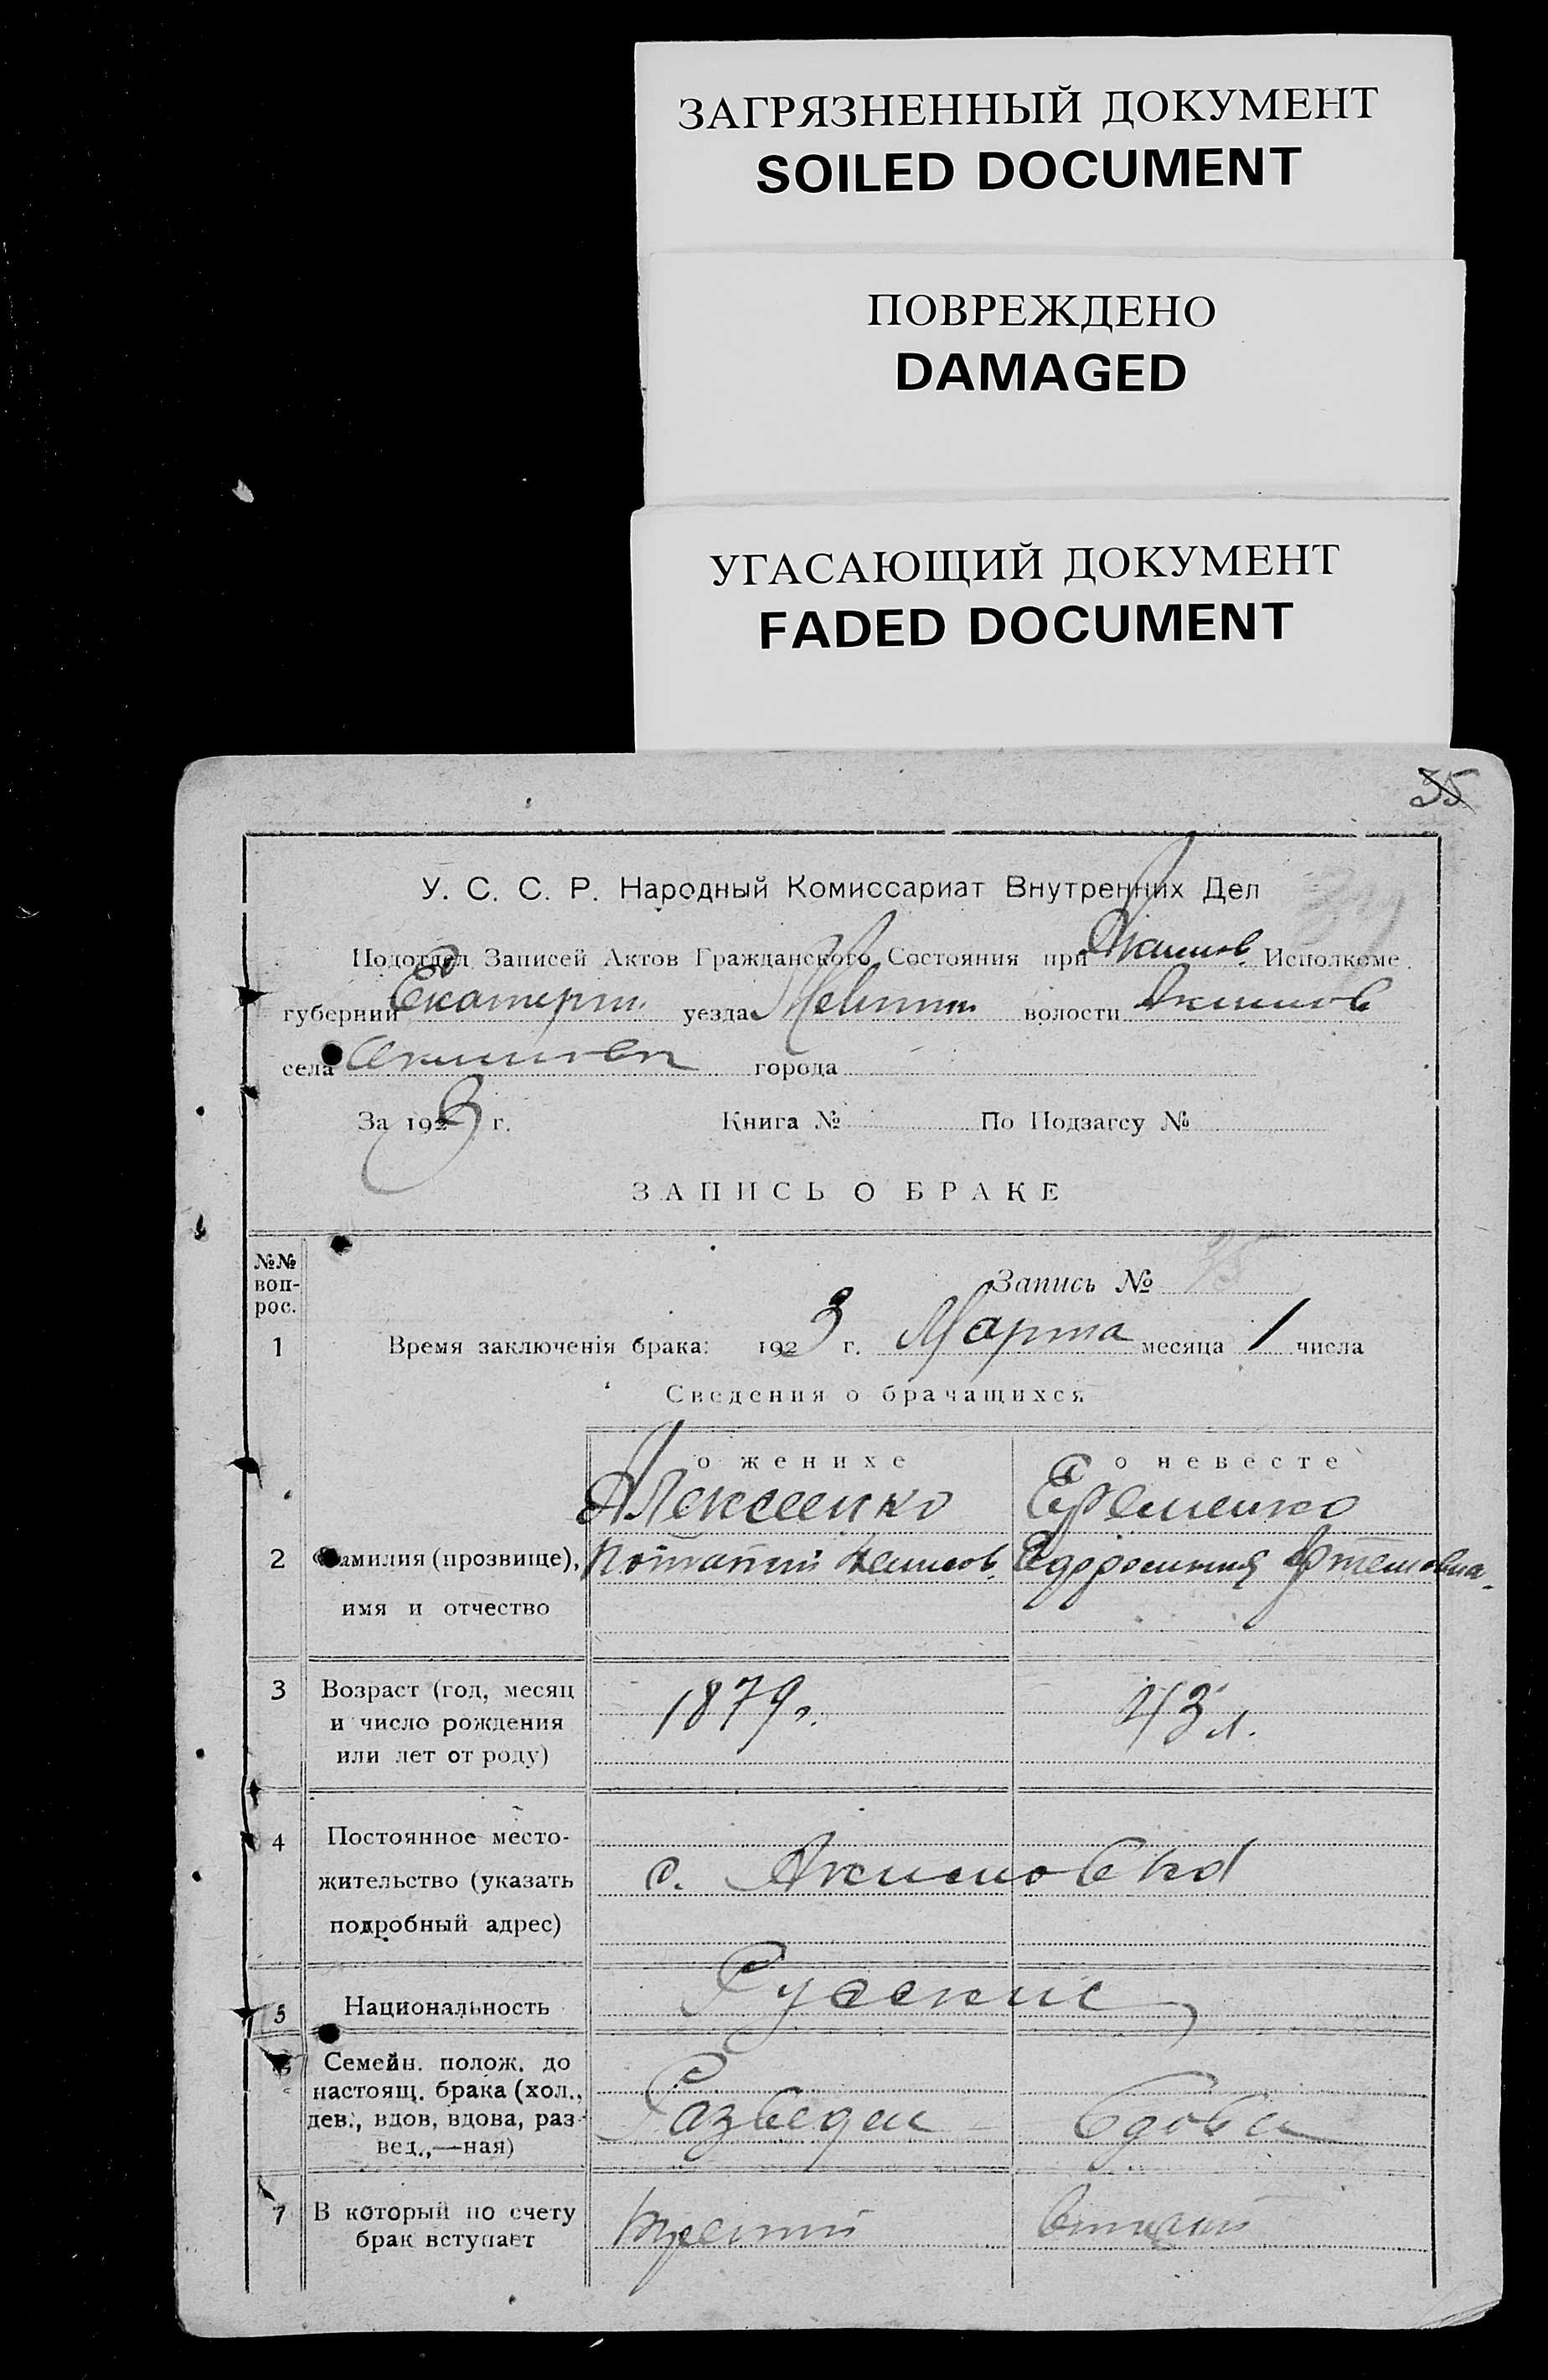 ЗАГРЯЗНЕННЫЙ ДОКУМЕНТ
SOILED DOCUMENT
ПОВРЕЖДЕНО
DAMAGED
УГАСАЮЩИЙ ДОКУМЕНТ
FADED DOCUMENT
35
У. С. С. Р. Народный Комиссариат Внутренних Дел
Подотдел Записей Актов Гражданского Состояния при Акимов. Исполкоме
губернии Екатерин. уезда Мелитоп. волости Акимов
села Акимовка города
За 1923 г. Книга № По Подзагсу №
ЗАПИСЬ О БРАКЕ
№№ воп-рос.
Запись № 35
1 Время заключенія брака: 1923 г. Марта месяца 1 числа
Сведения о брачащихся
о женихе о невесте
Алексеенко Еременко
2 Фамилия (прозвище), Потапий Денисов. Артемовна
имя и отчество
3 Возраст (год, месяц
и число рождения 1879 г. 43 л.
или лет от роду)
4 Постоянное место-
жительство (указать с. Акимовка
подробный адрес)
5 Национальность Русские
6 Семейн. полож. до
настоящ. брака (хол.,
дев., вдов, вдова, раз- Разведен вдова
вед.,—ная)
7 В который по счету третий
брак вступает